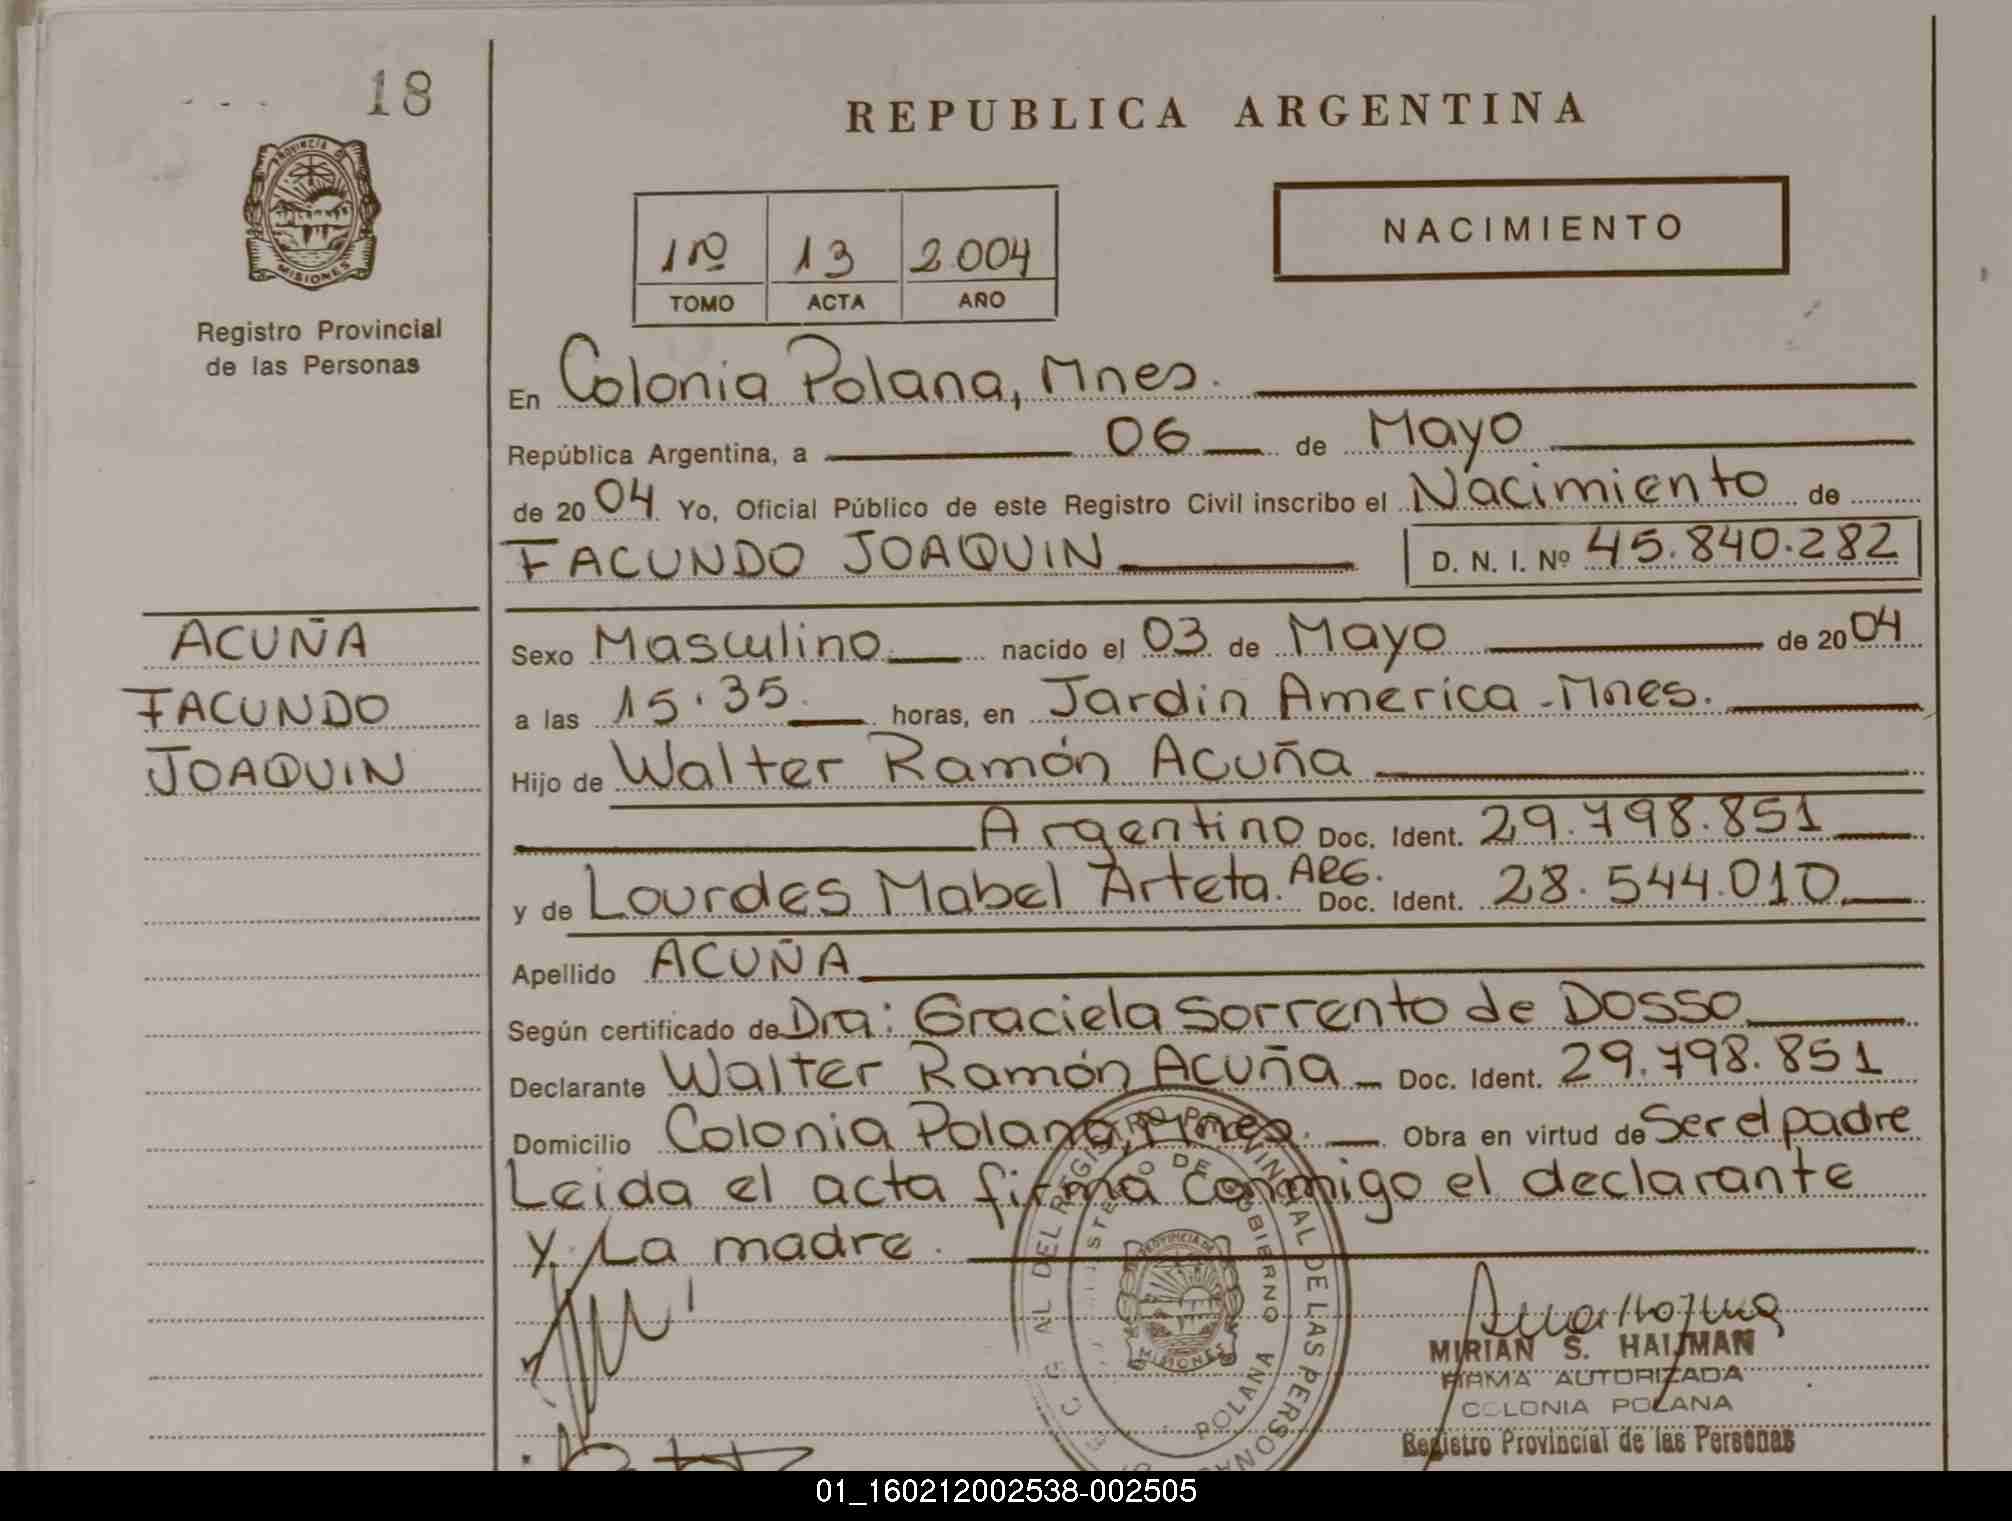 18
REPUBLICA ARGENTINA
PROVINCIA DE
MISIONES
Registro Provincial
de las Personas
NACIMIENTO
1º 13 2.004
TOMO ACTA AÑO
En Colonia Polana, Mnes.
República Argentina, a 06 de Mayo
de 2004 Yo, Oficial Público de este Registro Civil inscribo el Nacimiento de
FACUNDO JOAQUIN D. N. I. Nº 45.840.282
ACUÑA
FACUNDO
JOAQUIN
Sexo Masculino nacido el 03 de Mayo de 2004
a las 15.35. horas, en Jardin America - Mnes.
Hijo de Walter Ramón Acuña
Argentino Doc. Ident. 29.798.851
y de Lourdes Mabel Arteta. ARG. Doc. Ident. 28.544.010
Apellido ACUÑA
Según certificado de Dra: Graciela Sorrento de Dosso
Declarante Walter Ramón Acuña Doc. Ident. 29.798.851
Domicilio Colonia Polana, Mnes. Obra en virtud de Ser el padre
Leida el acta firma conmigo el declarante
y La madre.
AL DEL REGISTRO PROVINCIAL DE LAS PERSONAS
DE GOBIERNO
PROVINCIA DE
MISIONES
POLANA
MIRIAN S. HAIJMAN
FIRMA AUTORIZADA
COLONIA POLANA
Registro Provincial de las Personas
01_160212002538-002505